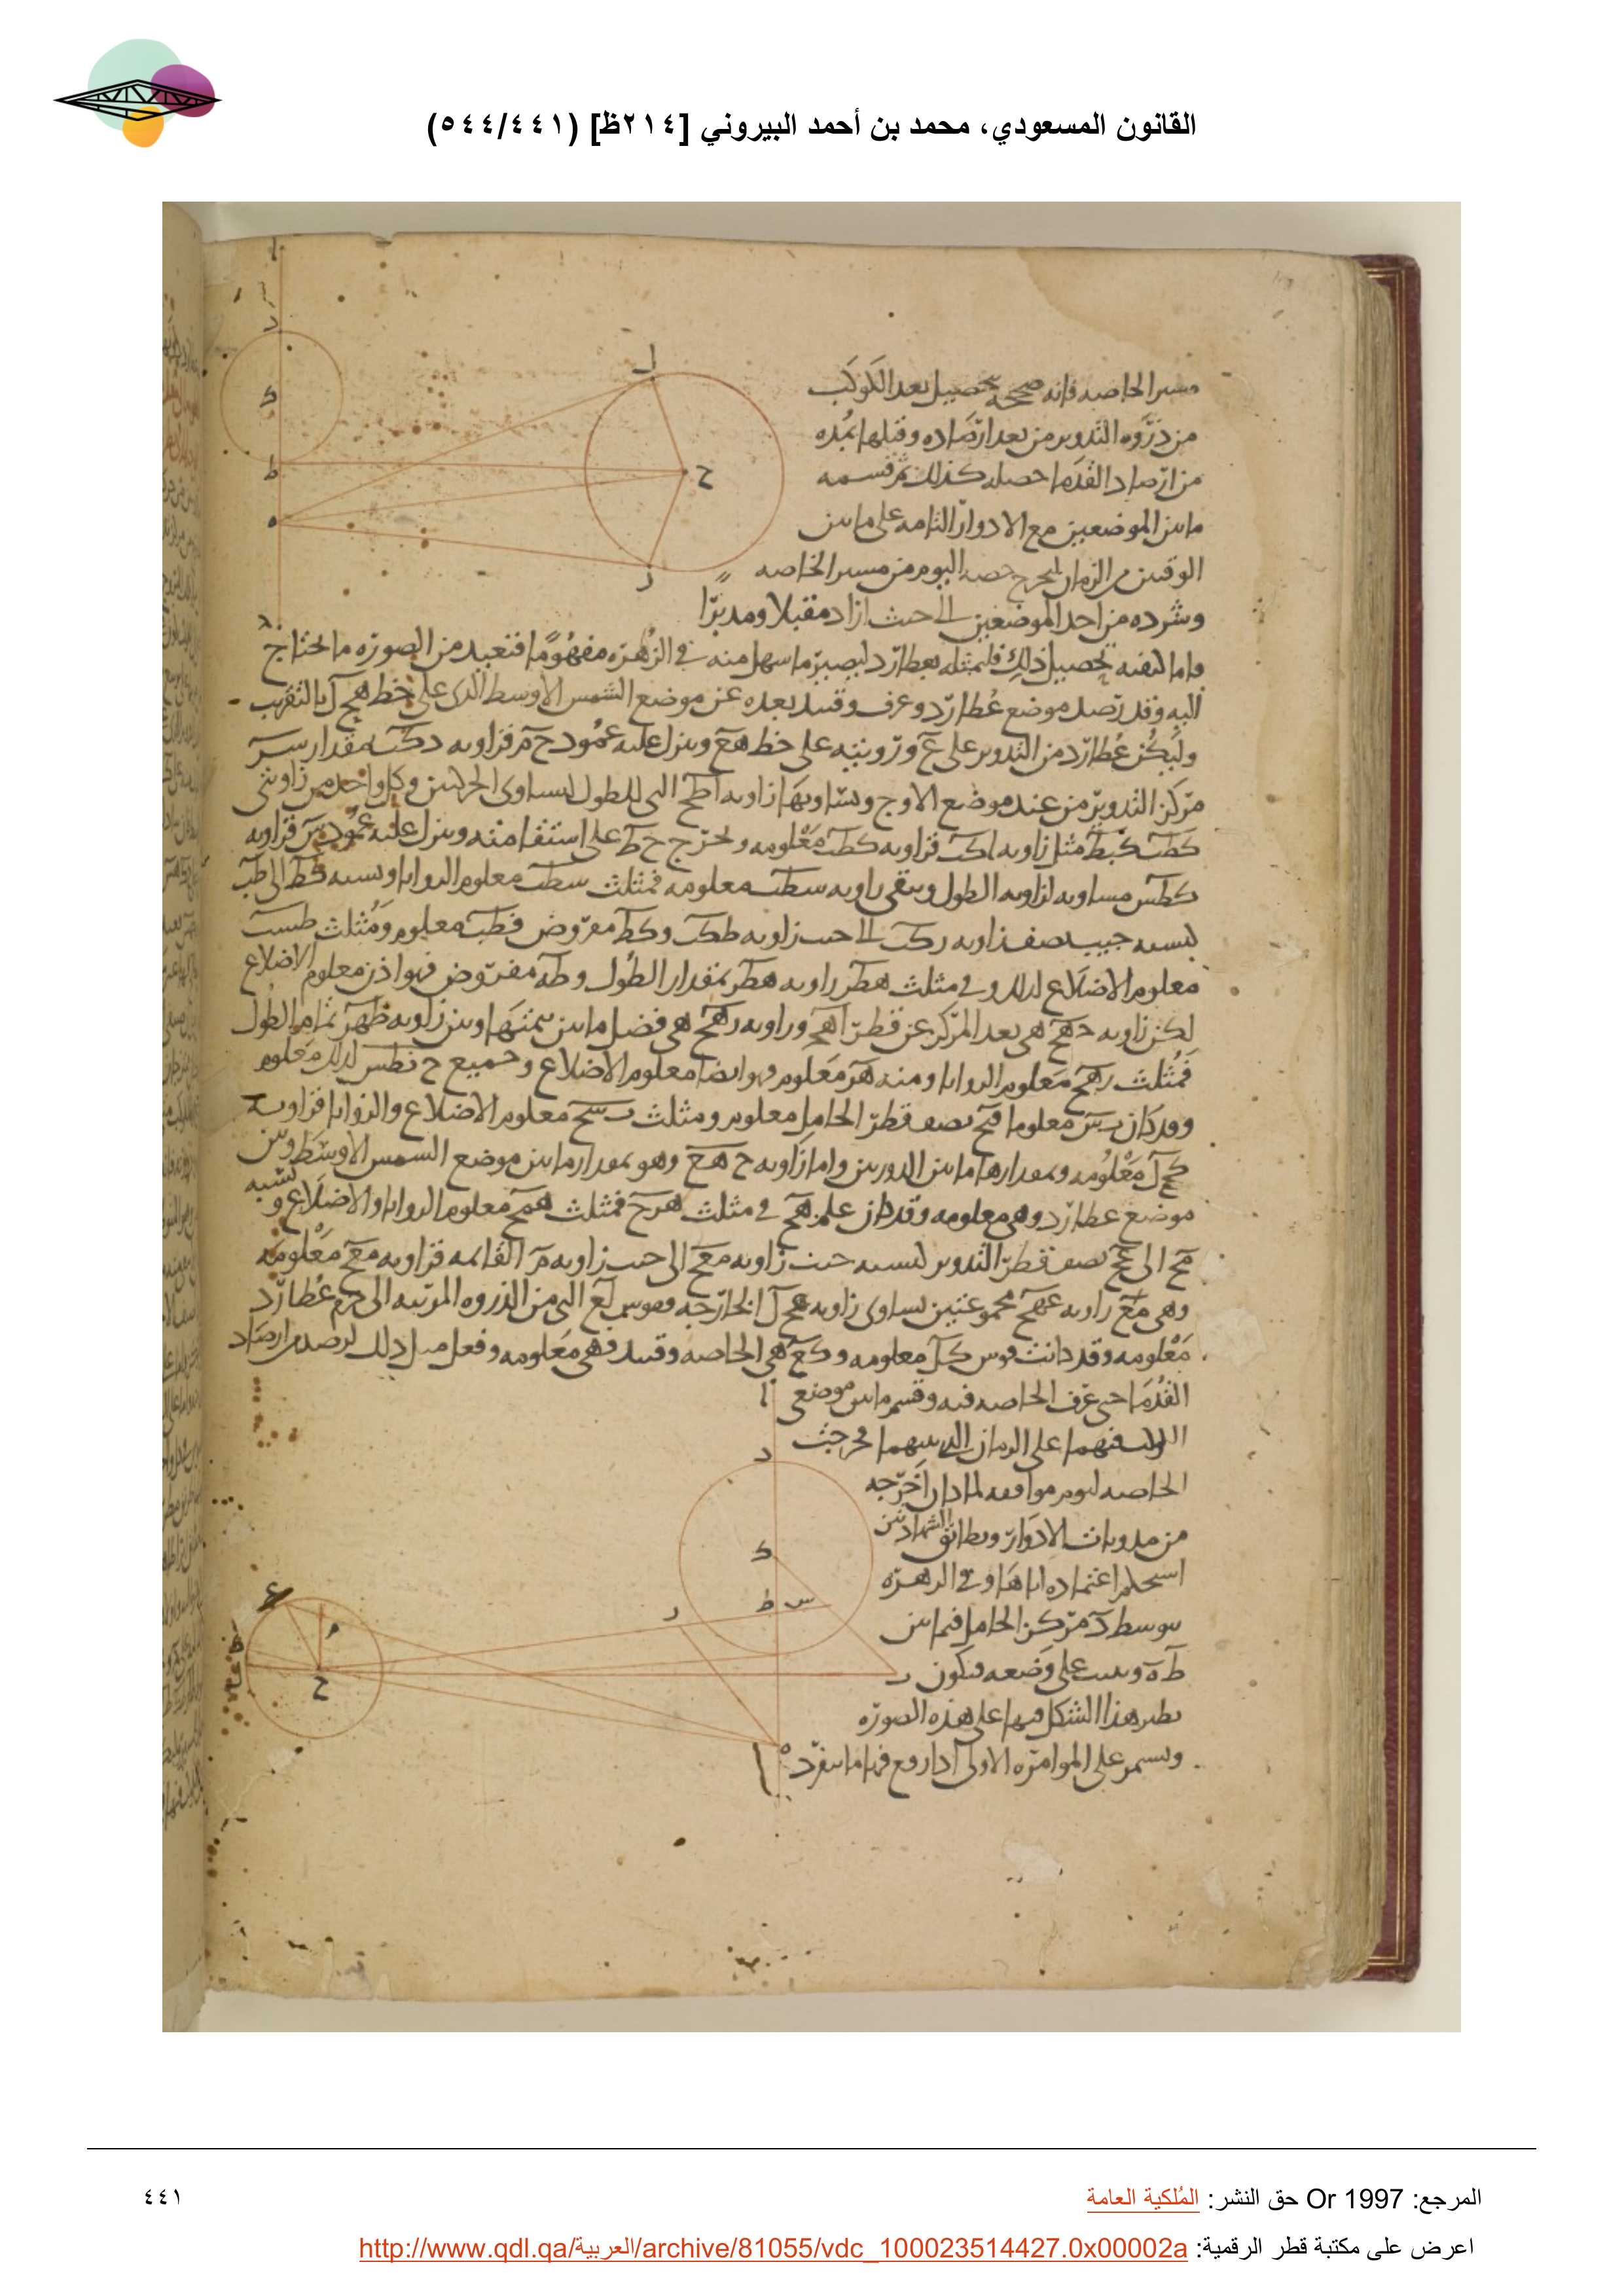 القانون المسعودي، محمد بن أحمد البيروني [٢١٤ظ] (٥٤٤/٤٤١)
مسير الخاصه فانه صححه بتحصيل بعد الكوكب
من ذروه التدوير من بعد ارصاده وقبلها بمده
من ارصاد القدما حصله كذلك ثم قسمه
ما بين الموضعين مع الادوار التامه على ما بين
الوقتين من الزمان ليخرج حصه اليوم من مسير الخاصه
وشرده من احد الموضعين الى حيث اراد مقبلا ومدبرا
واما كيفيه تحصيل ذلك فليمثله بعطارد ليصير ما سهل منه في الزهره مفهوما فنعيد من الصوره ما يحتاج
اليه وقد رصد موضع عطارد وعرف وقتيذ بعده عن موضع الشمس الاوسط الذى على خط هح ل بالتقريب
وليكن عطارد من التدوير على ع وزويته على خط هع وينزل عليه عمود ح م فزاويه دكب مقدار سير
مركز التدوير من عند موضع الاوج وتساويها زاويه اطح التى للطول لتساوى الحركتين وكل واحد من زاويتى
كطب كبط مثل زاويه فزاويه كطب معلومه ونخرج ح ط على استقامته وينزل عليه عمود بس فزاويه
كطس مساويه لزاويه الطول وتبقى زاويه سطب معلومه فمثلث سطب معلوم الزوايا ونسبه كط الى طب
كنسبه جيب نصف زاويه دكب الى جيب زاويه طكب وكط مفروض فطب معلوم ومثلث طسب
معلوم الاضلاع لذلك وفي مثلث هطر زاويه هطر بمقدار الطول وطه مفروض فهو اذن معلوم الاضلاع
لكن زاويه دهح هى بعد المركز عن قطر اهح وزاويه رهح هى فضل ما بين تمتها وبين زاويه طهر تمام الطول
فمثلث رهح معلوم الزوايا ومنه هر معلوم فهو ايضا معلوم الاضلاع وجميع ح نطس لذلك معلوم
وقد كان بس معلوما فبح نصف قطر الحامل معلوم ومثلث بسح معلوم الاضلاع والزوايا فزاويه
كح ل معلومه وبمقدارها ما بين الذروتين واما زاويه ح هع وهو بمقدار ما بين موضع الشمس الاوسط وبين
موضع عطارد وهى معلومه وقد كان علم هح في مثلث هرح فمثلث همح معلوم الزوايا والاضلاع ونسبه
مح الى عح نصف قطر التدوير كنسبه جيب زاويه معح الى جيب زاويه م القائمه فزاويه معح معلومه
وهى مع زاويه عهح مجموعتين تساوى زاويه عح ل الخارجه وقوس لع التى من الذروه المرئيه الى جرم عطارد
معلومه وقد كانت قوس كل معلومه وكع هى الخاصه وقتيذ فهى معلومه وفعل مثل ذلك لرصد من ارصاد
القدما حتى عرف الخاصه فيه وقسم ما بين موضعى
على الزمان الذى بينهما فخرجت
الخاصه ليوم موافقه لما كان اخرجه
من الادوار وبطابق الشهادتين
استحكم اعتماده اياها وفي الزهره
يتوسط د مركز الحامل فيما بين
ط ه على وضعه فيكون
نظير هذا الشكل فيها على هذه الصوره
ويستمر على الموامره الاولى
المرجع: Or 1997 حق النشر: المُلكية العامة
٤٤١
اعرض على مكتبة قطر الرقمية: http://www.qdl.qa/العربية/archive/81055/vdc_100023514427.0x00002a